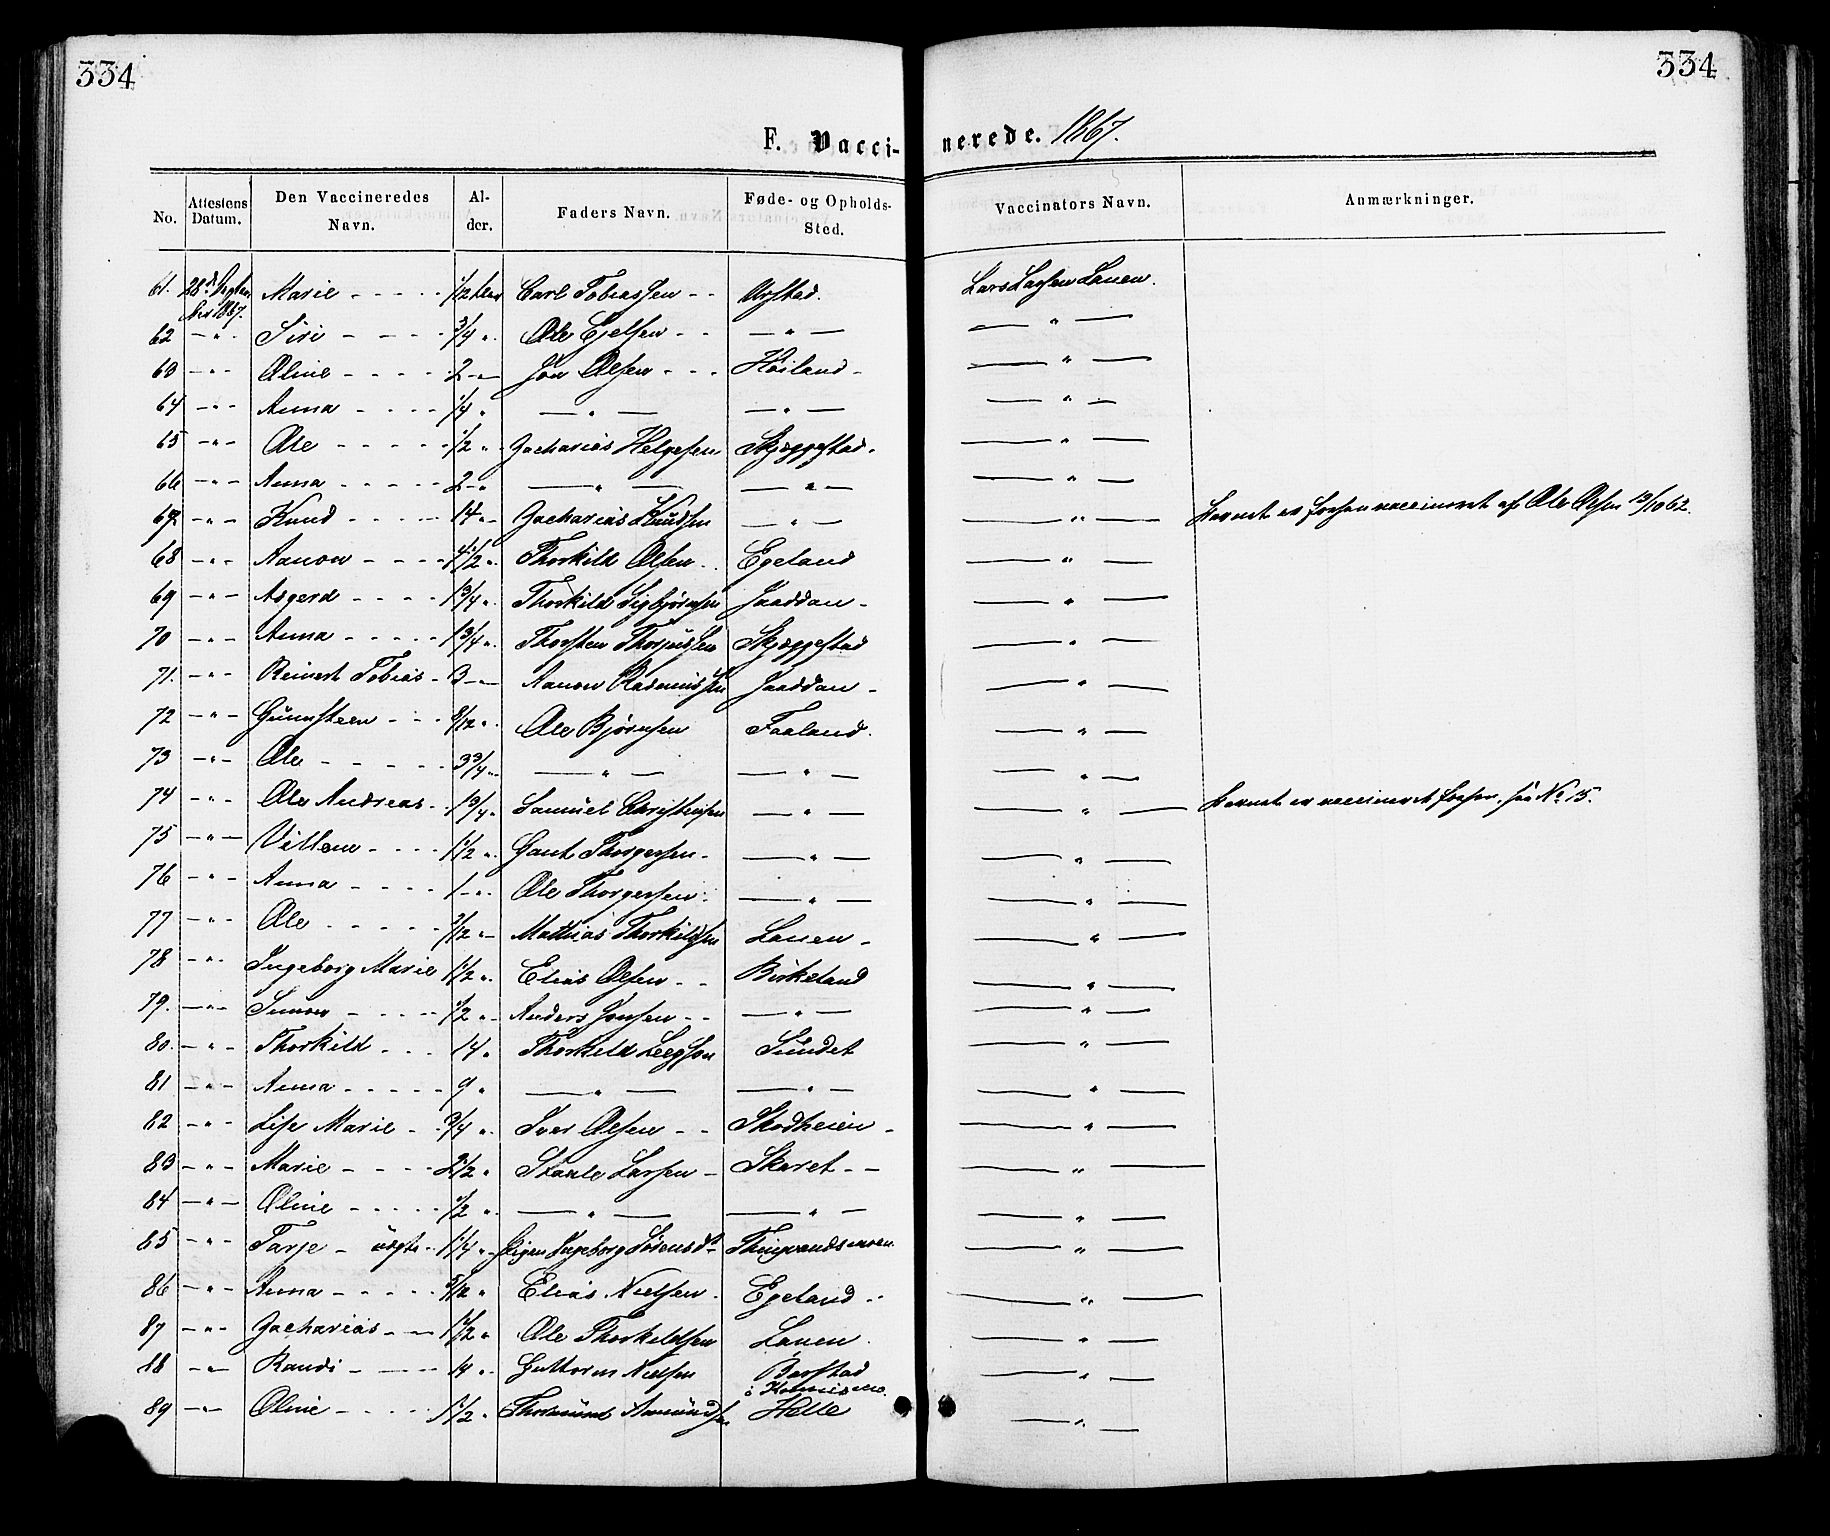 334
334
F. Vacci-
nerede. 1867.
No. Attestens Datum. Den Vaccineredes Navn. Al-der. Faders Navn. Føde- og Opholds-Sted. Vaccinators Navn. Anmærkninger.
61. 28de Septem-ber 1867. Marie - - - - 1/2 Carl Tobiassen - - Aarstad. Lars Larsen Lauen.
62 - " - Siri - - - - 3/4 " Ole Ejelsen - - — " — — " —
63 - " - Oline - - - - 2 - " - Jon Olsen - - - Høiland - — " —
64 - " - Anna - - - - 1/4 " — " — — " — — " —
65 - " - Ole - - - - - 1/2 " Zacharias Helgesen Skjeggestad. — " —
66 - " - Anna - - - - - 2 - " — " — — " — — " —
67 - " - Knud - - - - 14 " - Zacharias Knudsen — " — — " — Barnet er forhen vaccineret af Ole Olsen 13/10 62.
68 - " - Aanon - - - - 4 1/2 " Thorkild Olsen - - Egeland — " —
69 - " - Asgerd - - - - 1 3/4 " Thorkild Sigbjørnsen Jaaddan - — " —
70 - " - Anna - - - - - 1 3/4 " Thorsten Thorjussen Skjeggestad — " —
71. - " - Reinert Tobias - 3 - " - Aanon Rasmussen Jaaddan - — " —
72 - " - Gunnsteen - - - 8/12 " Ole Bjørnsen Faaland. — " —
73 - " - Ole - - - - - 3 3/4 " — " — — " — — " —
74 - " - Ole Andreas - - 1 3/4 " Samuel Christensen — " — — " — Barnet er vaccineret forhen, see No 15.
75 - " - Villem - - - - 1 1/2 " Gaut Thorgersen - — " — — " —
76 - " - Anna - - - - 1 - " - Ole Thorgersen — " — — " —
77 - " - Ole - - - - - 1/2 " - Mathias Thorkildsen Lauen - — " —
78 - " - Ingeborg Marie 1 1/2 " Elias Olsen - - Birkeland — " —
79. - " - Simon - - - - 1/2 " Anders Jonsen - - — " — — " —
80. - " - Thorkild - - - 14 " Thorkild Legssen Sundet — " —
81 - " - Anna - - - - - 9 " — " — — " — — " —
82 - " - Lise Marie - - 3/4 " Iver Olsen - - Stodheien - — " —
83 - " - Marie - - - - 2 1/2 " Staale Larsen - Skaret - - — " —
84 - " - Oline - - - - - 1/2 " — " — — " — — " —
85 - " - Tarje - uægte - 1 1/4 " Pigen Ingeborg Sørensdtr Thingvandsmoen — " —
86 - " - Anna - - - - - 5/12 " Elias Nielsen - Egeland - - — " —
87 - " - Zacharias - - 1 1/2 " Ole Thorkildsen Lauen - — " —
88 - " - Randi - - - - 14 " - Guttorm Nielsen Barstad — " —
i
89 - " - Oline - - - - - 1 1/2 " Thormund Aamundsen Helle — " —